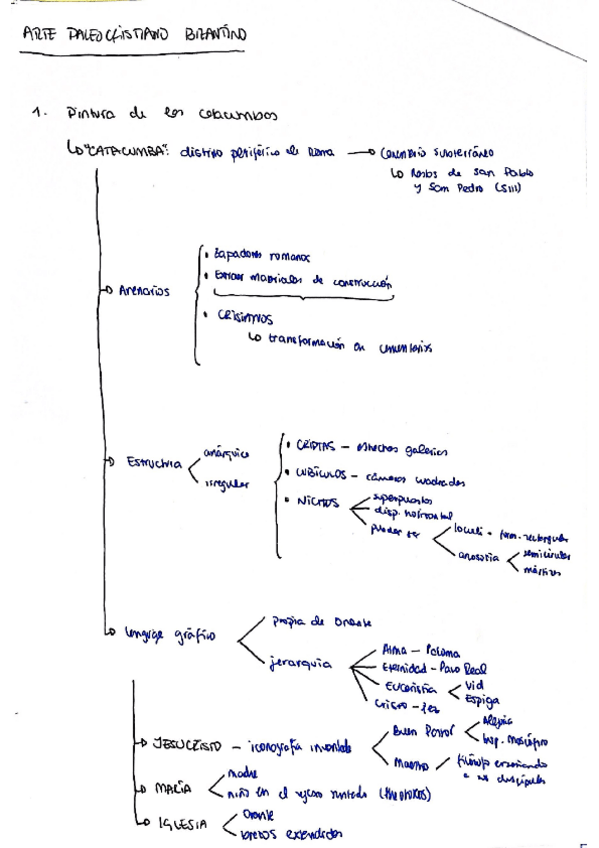 ARTE PALEOCRISTIANO BIZANTINO
1. Pintura de las catacumbas
"CATACUMBA": distrito periférico de Roma → Cementerio subterráneo
Restos de San Pablo
y San Pedro (SIII)
Arenarios
• Zapadores romanos
• Extraer materiales de construcción
• CRISTIANOS
transformación en cementerios
Estructura
anárquica
irregular
• CRIPTAS – estrechas galerías
• CUBÍCULOS – cámaras cuadradas
• NICHOS
superpuestos
disp. horizontal
pueden ser
loculi • form. rectangular
arcosolia
semicircular
mártires
Lenguaje gráfico
propia de Oriente
jerarquía
Alma – Paloma
Eternidad – Pavo Real
Eucaristía
Vid
Espiga
Cristo – Pez
JESUCRISTO – iconografía inventada
Buen Pastor
Alegoría
Insp. moscóforo
Maestro
filósofo enseñando
a sus discípulos
MARÍA
madre
niño en el regazo sentada (theotokos)
IGLESIA
Orante
brazos extendidos